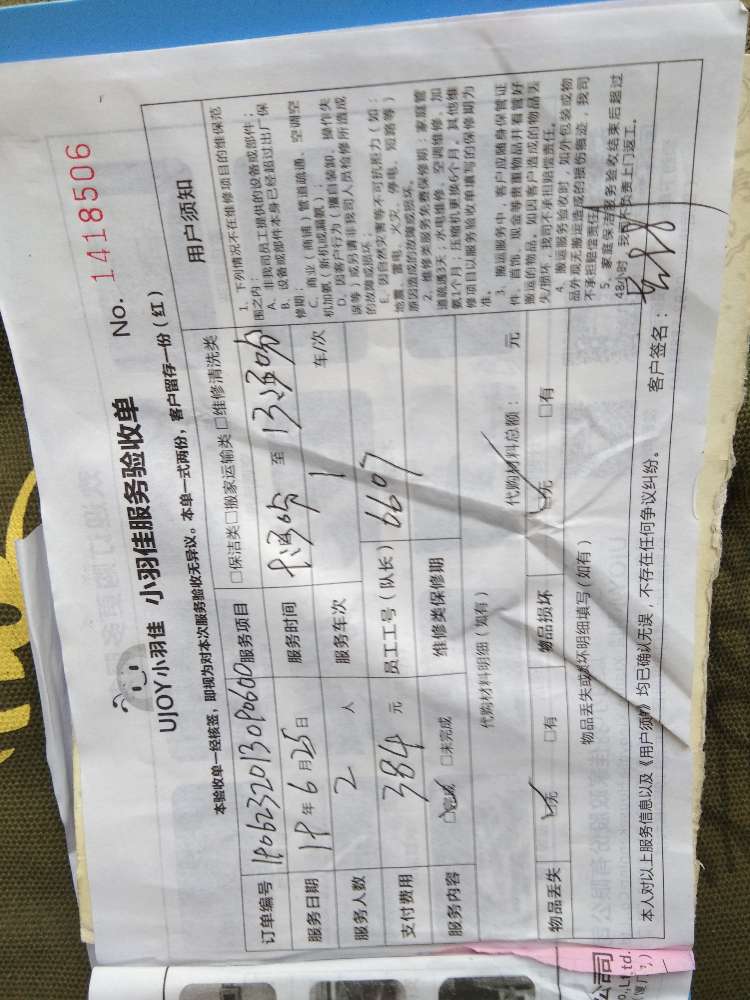 No. 1418506
UJOY小羽佳 小羽佳服务验收单
本验收单一经核签，即视为对本次服务验收无异议。本单一式两份，客户留存一份（红）
订单编号 服务项目 □保洁类□搬家运输类□维修清洗类
服务日期 年 6 月 25 日 服务时间 至
服务人数 2 人 服务车次 1 车/次
支付费用 384 元 员工工号（队长） 6607
服务内容 □完成 □未完成 维修类保修期
代购材料明细（如有） 代购材料总额： 元
物品丢失 □无 □有 物品损坏 □无 □有
物品丢失或损坏明细填写（如有）
用户须知
1、下列情况不在维修项目的维保范
围之内：
A、非我司员工提供的设备或部件；
B、设备或部件本身已经超过出厂保
修期；
C、商业（商铺）管道疏通、空调空
机加氨（新机或漏氨）；
D、因客户行为（擅自装卸、操作失
误等）或另请非我司人员检修所造成
的故障或损坏；
E、因自然灾害等不可抗拒力（如：
地震、雷电、火灾、停电、短路等）
原因造成的故障或损坏。
2、维修类服务免费保修期：家庭管
道疏通3天；水电维修、空调维修、加
氨1个月；压缩机更换6个月。其他维
修项目以服务验收单填写的保修期为
准。
3、搬运服务中，客户应随身保管证
件、首饰、现金等贵重物品并看管好
搬运的物品，如因客户造成的物品丢
失/损坏，我司不承担赔偿责任。
4、搬运服务验收时，如外包装或物
品外观无搬运造成的损伤痕迹，我司
不承担赔偿责任。
5、家庭保洁服务验收结束后超过
48小时，我司不负责上门返工。
本人对以上服务信息以及《用户须知》均已确认无误，不存在任何争议纠纷。 客户签名：
公司